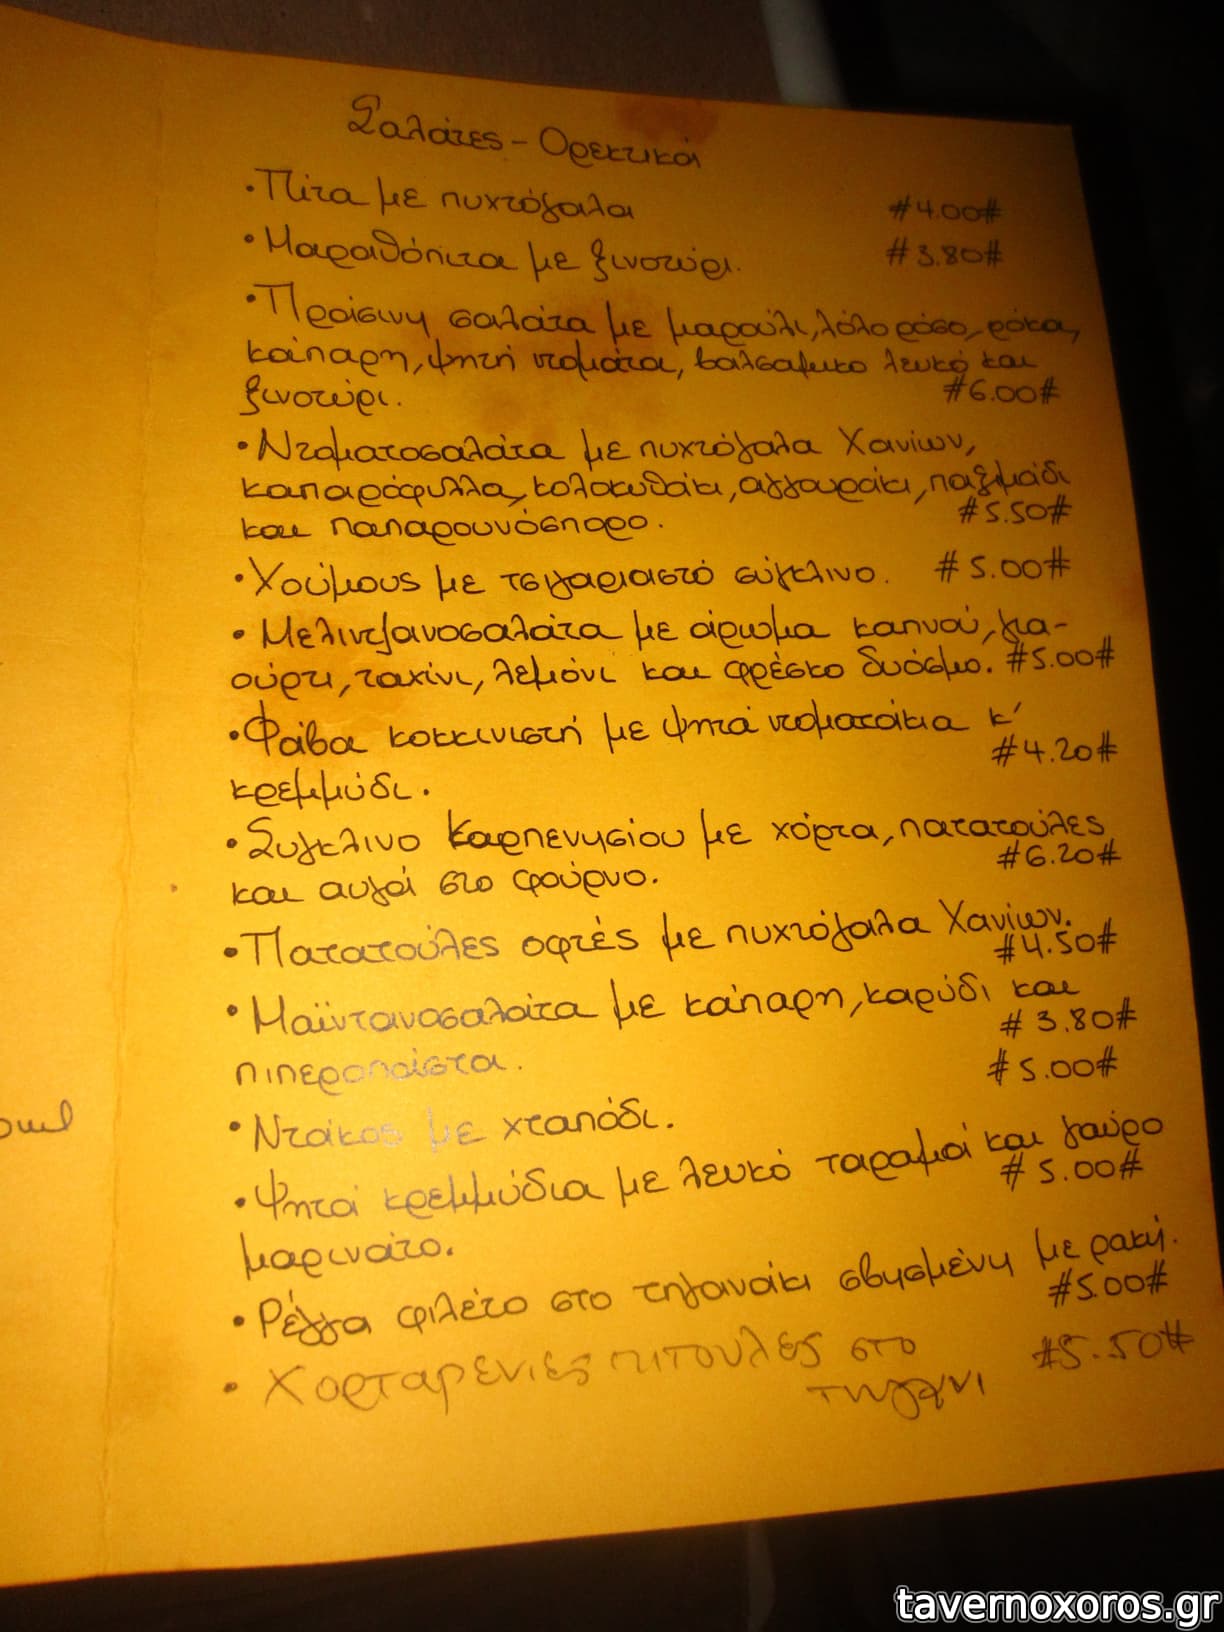 Σαλάτες - Ορεκτικά
• Πίτα με πυχτόγαλα #4.00#
• Μαραθόπιτα με ξινοτύρι. #3.80#
• Πράσινη σαλάτα με μαρούλι, λόλο ρόσο, ρόκα,
κάπαρη, ψητή ντομάτα, βαλσαμικο λευκό και
ξινοτύρι. #6.00#
• Ντοματοσαλάτα με πυχτόγαλα Χανίων,
καπαρόφυλλα, κολοκυθάκι, αγγουράκι, παξιμάδι
και παπαρουνόσπορο. #5.50#
• Χούμους με τσιγαριαστό σύγκλινο. #5.00#
• Μελιντζανοσαλάτα με άρωμα καπνού, για-
ούρτι, ταχίνι, λεμόνι και φρέσκο δυόσμο. #5.00#
• Φάβα κοκκινιστή με ψητά ντοματάκια κ'
κρεμμύδι. #4.20#
• Συγκλινο Καρπενησίου με χόρτα, πατατούλες
και αυγά στο φούρνο. #6.20#
• Πατατούλες οφτές με πυχτόγαλα Χανίων.
#4.50#
• Μαϊντανοσαλάτα με κάπαρη, καρύδι και
πιπερόπαστα. #3.80#
• Ντάκος με χταπόδι. #5.00#
• Ψητά κρεμμύδια με λευκό ταραμά και γαύρο
μαρινάτο. #5.00#
• Ρέγγα φιλέτο στο τηγανάκι σβησμένη με ρακή.
#5.00#
• Χορταρενιες πιτουλες στο #5.50#
τηγανι
tavernoxoros.gr